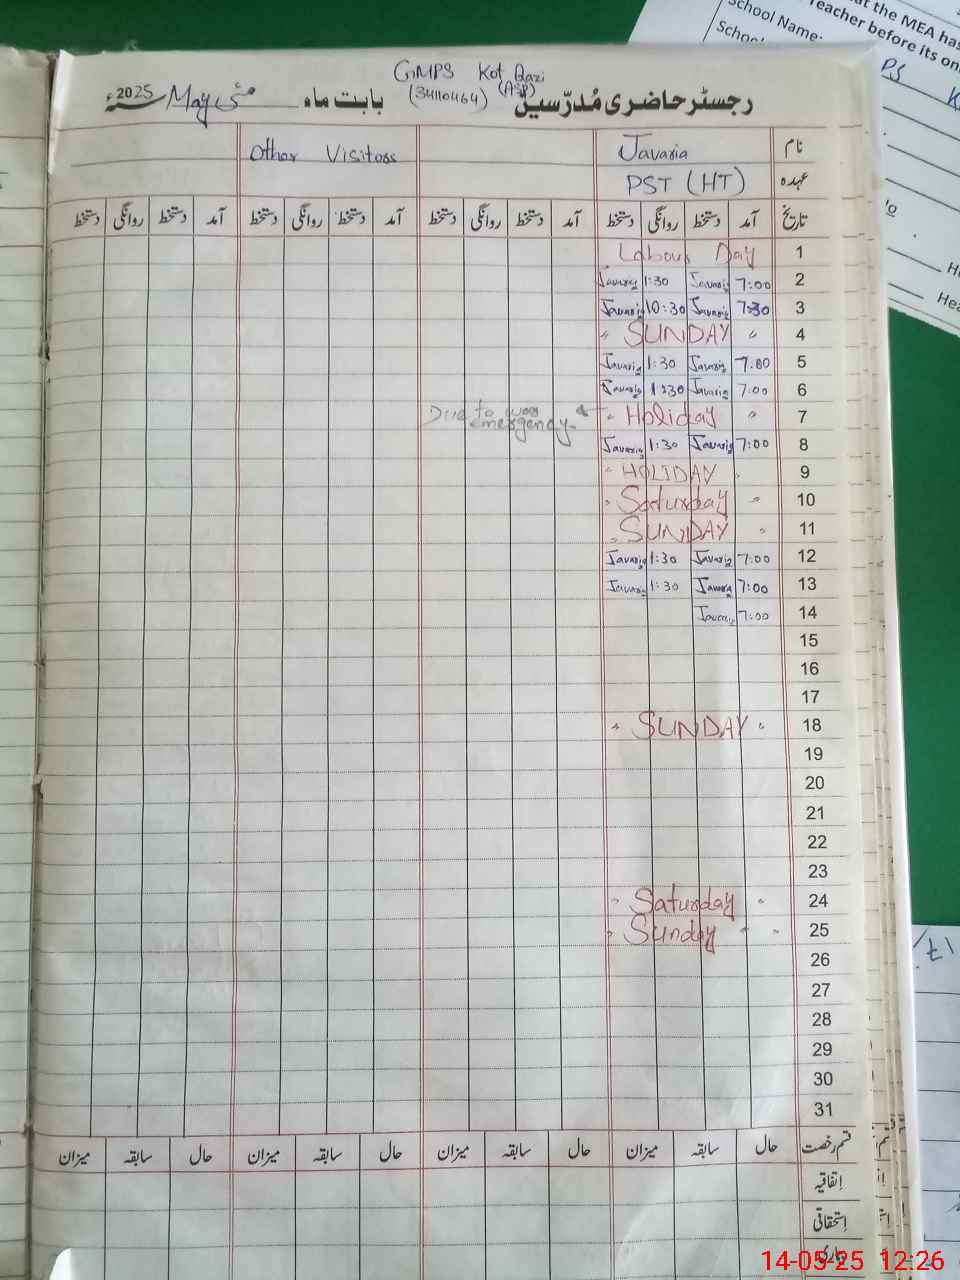 GMPS Kot Qazi
رجسٹر حاضری مُدرّسین (34110464) بابت ماہ مئی May سنہ 2025ء
نام Javaria Other Visitors
عہدہ PST (HT)
تاریخ آمد دستخط روانگی دستخط آمد دستخط روانگی دستخط آمد دستخط روانگی دستخط آمد دستخط روانگی دستخط
1 Labour Day
2 7:00 Javaria 1:30 Javaria
3 7:30 Javaria 10:30 Javaria
4 " SUNDAY "
5 7:00 Javaria 1:30 Javaria
6 7:00 Javaria 1:30 Javaria
7 " Holiday " Due to war emergency
8 7:00 Javaria 1:30 Javaria
9 " HOLIDAY "
10 " Saturday "
11 " SUNDAY "
12 7:00 Javaria 1:30 Javaria
13 7:00 Javaria 1:30 Javaria
14 7:00 Javaria
15
16
17
18 " SUNDAY "
19
20
21
22
23
24 " Saturday "
25 " Sunday " "
26
27
28
29
30
31
قسم رخصت حال سابقہ میزان حال سابقہ میزان حال سابقہ میزان حال سابقہ میزان
اِتفاقیہ
اِستحقاقی
School Name:
at the MEA has
Teacher before its on
14-05-25 12:26